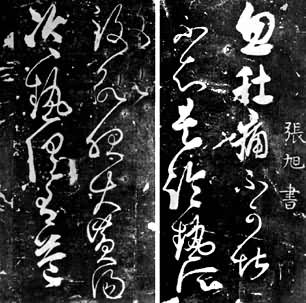 張旭書
忽肚痛不可堪
不知是冷熱所
致欲服大黃湯
冷熱俱有益